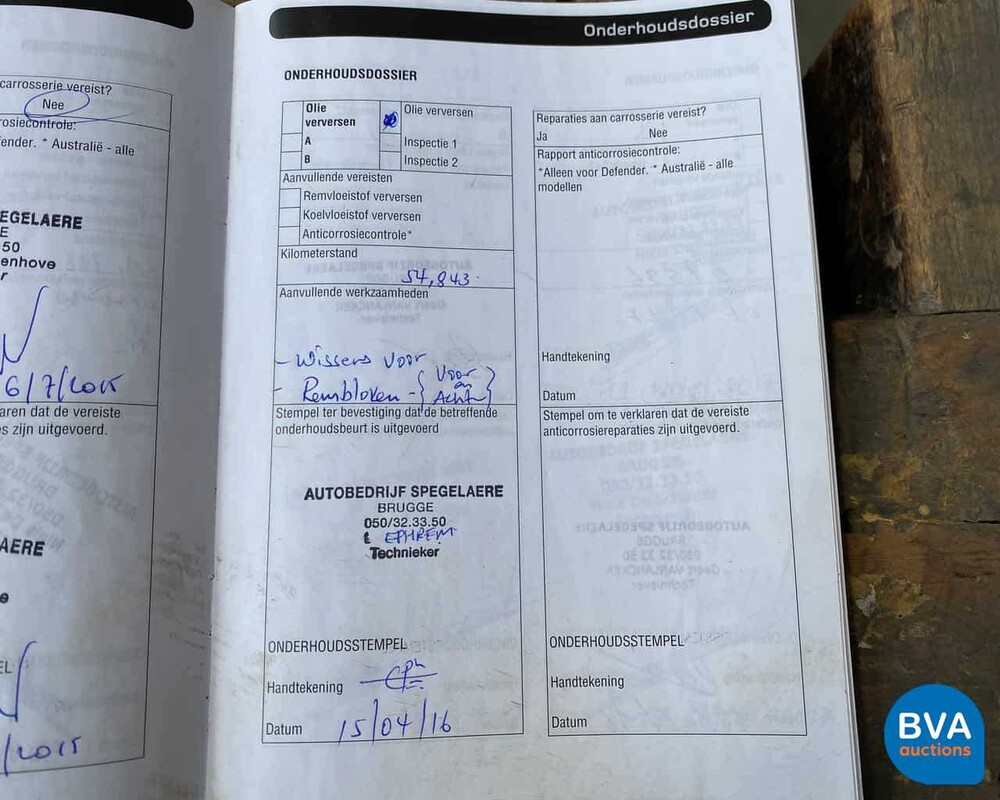 carrosserie vereist?
Nee
rosiecontrole:
fender. * Australië - alle
EGELAERE
E
50
enhove
r
6/7/2015
laren dat de vereiste
s zijn uitgevoerd.
AERE
e
EL
/2015
Onderhoudsdossier
ONDERHOUDSDOSSIER
Olie verversen
Olie verversen
A
Inspectie 1
B
Inspectie 2
Aanvullende vereisten
Remvloeistof verversen
Koelvloeistof verversen
Anticorrosiecontrole*
Kilometerstand
54,843
Aanvullende werkzaamheden
- Wissers Voor
- Remblokken - { Voor en Achter }
Stempel ter bevestiging dat de betreffende
onderhoudsbeurt is uitgevoerd
AUTOBEDRIJF SPEGELAERE
BRUGGE
050/32.33.50
EPHREM
Technieker
ONDERHOUDSSTEMPEL
Handtekening
Datum 15/04/16
Reparaties aan carrosserie vereist?
Ja Nee
Rapport anticorrosiecontrole:
*Alleen voor Defender. * Australië - alle
modellen
Handtekening
Datum
Stempel om te verklaren dat de vereiste
anticorrosiereparaties zijn uitgevoerd.
ONDERHOUDSSTEMPEL
Handtekening
Datum
BVA
auctions